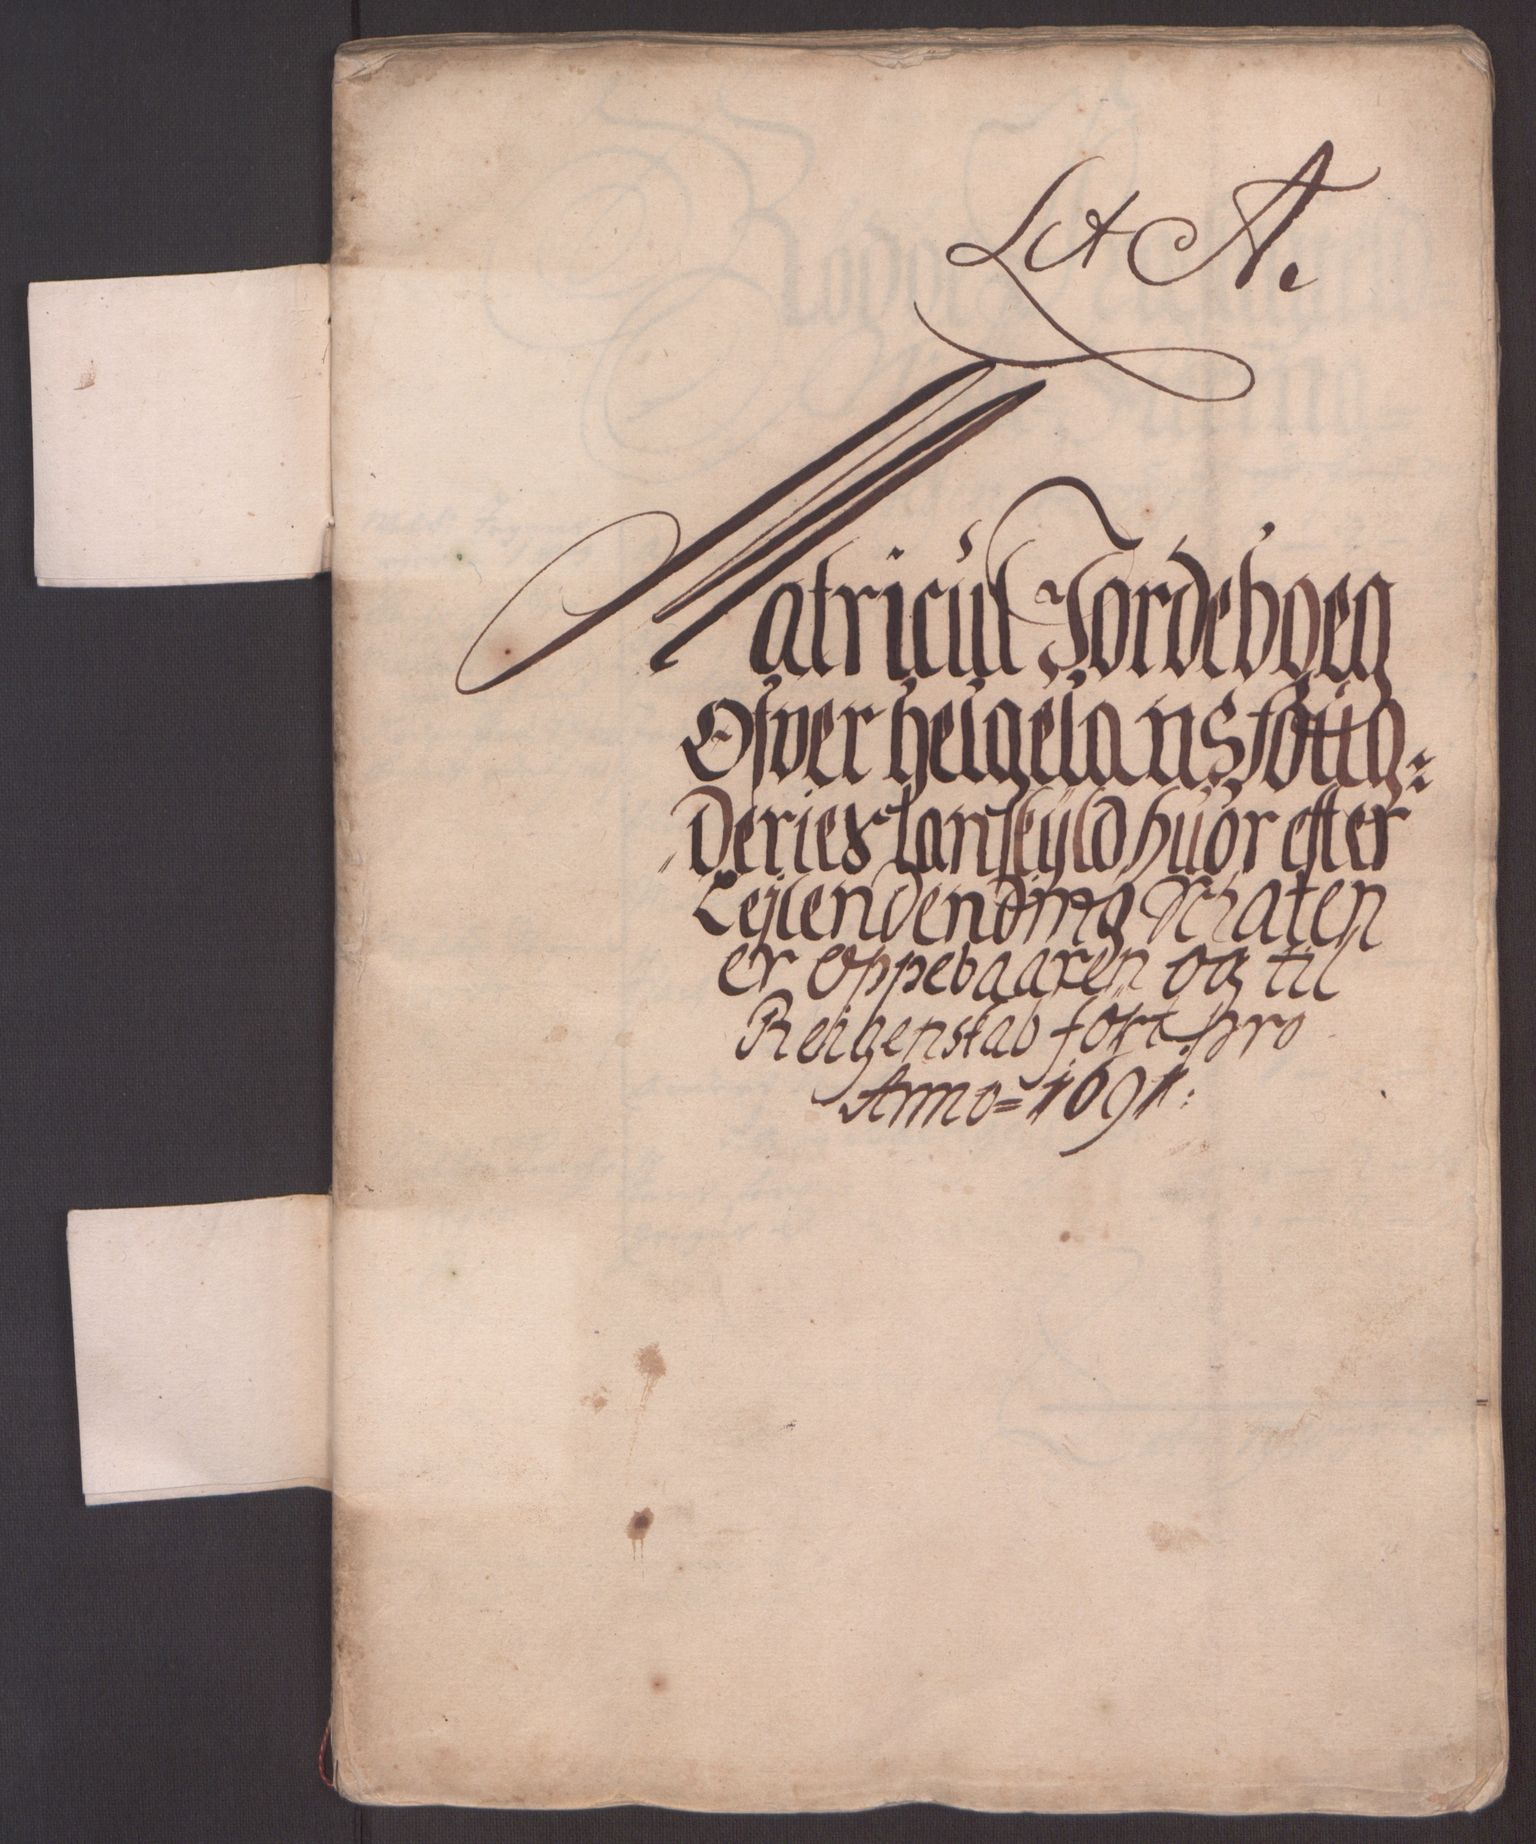 Lit A.
Matricul Jordeboeg
Ofver helgelans foug=
Deries Landskyld huor efter
Leylending Schaten
er Oppebaaren og til
Reigenskab fört pro
Anno=1691: